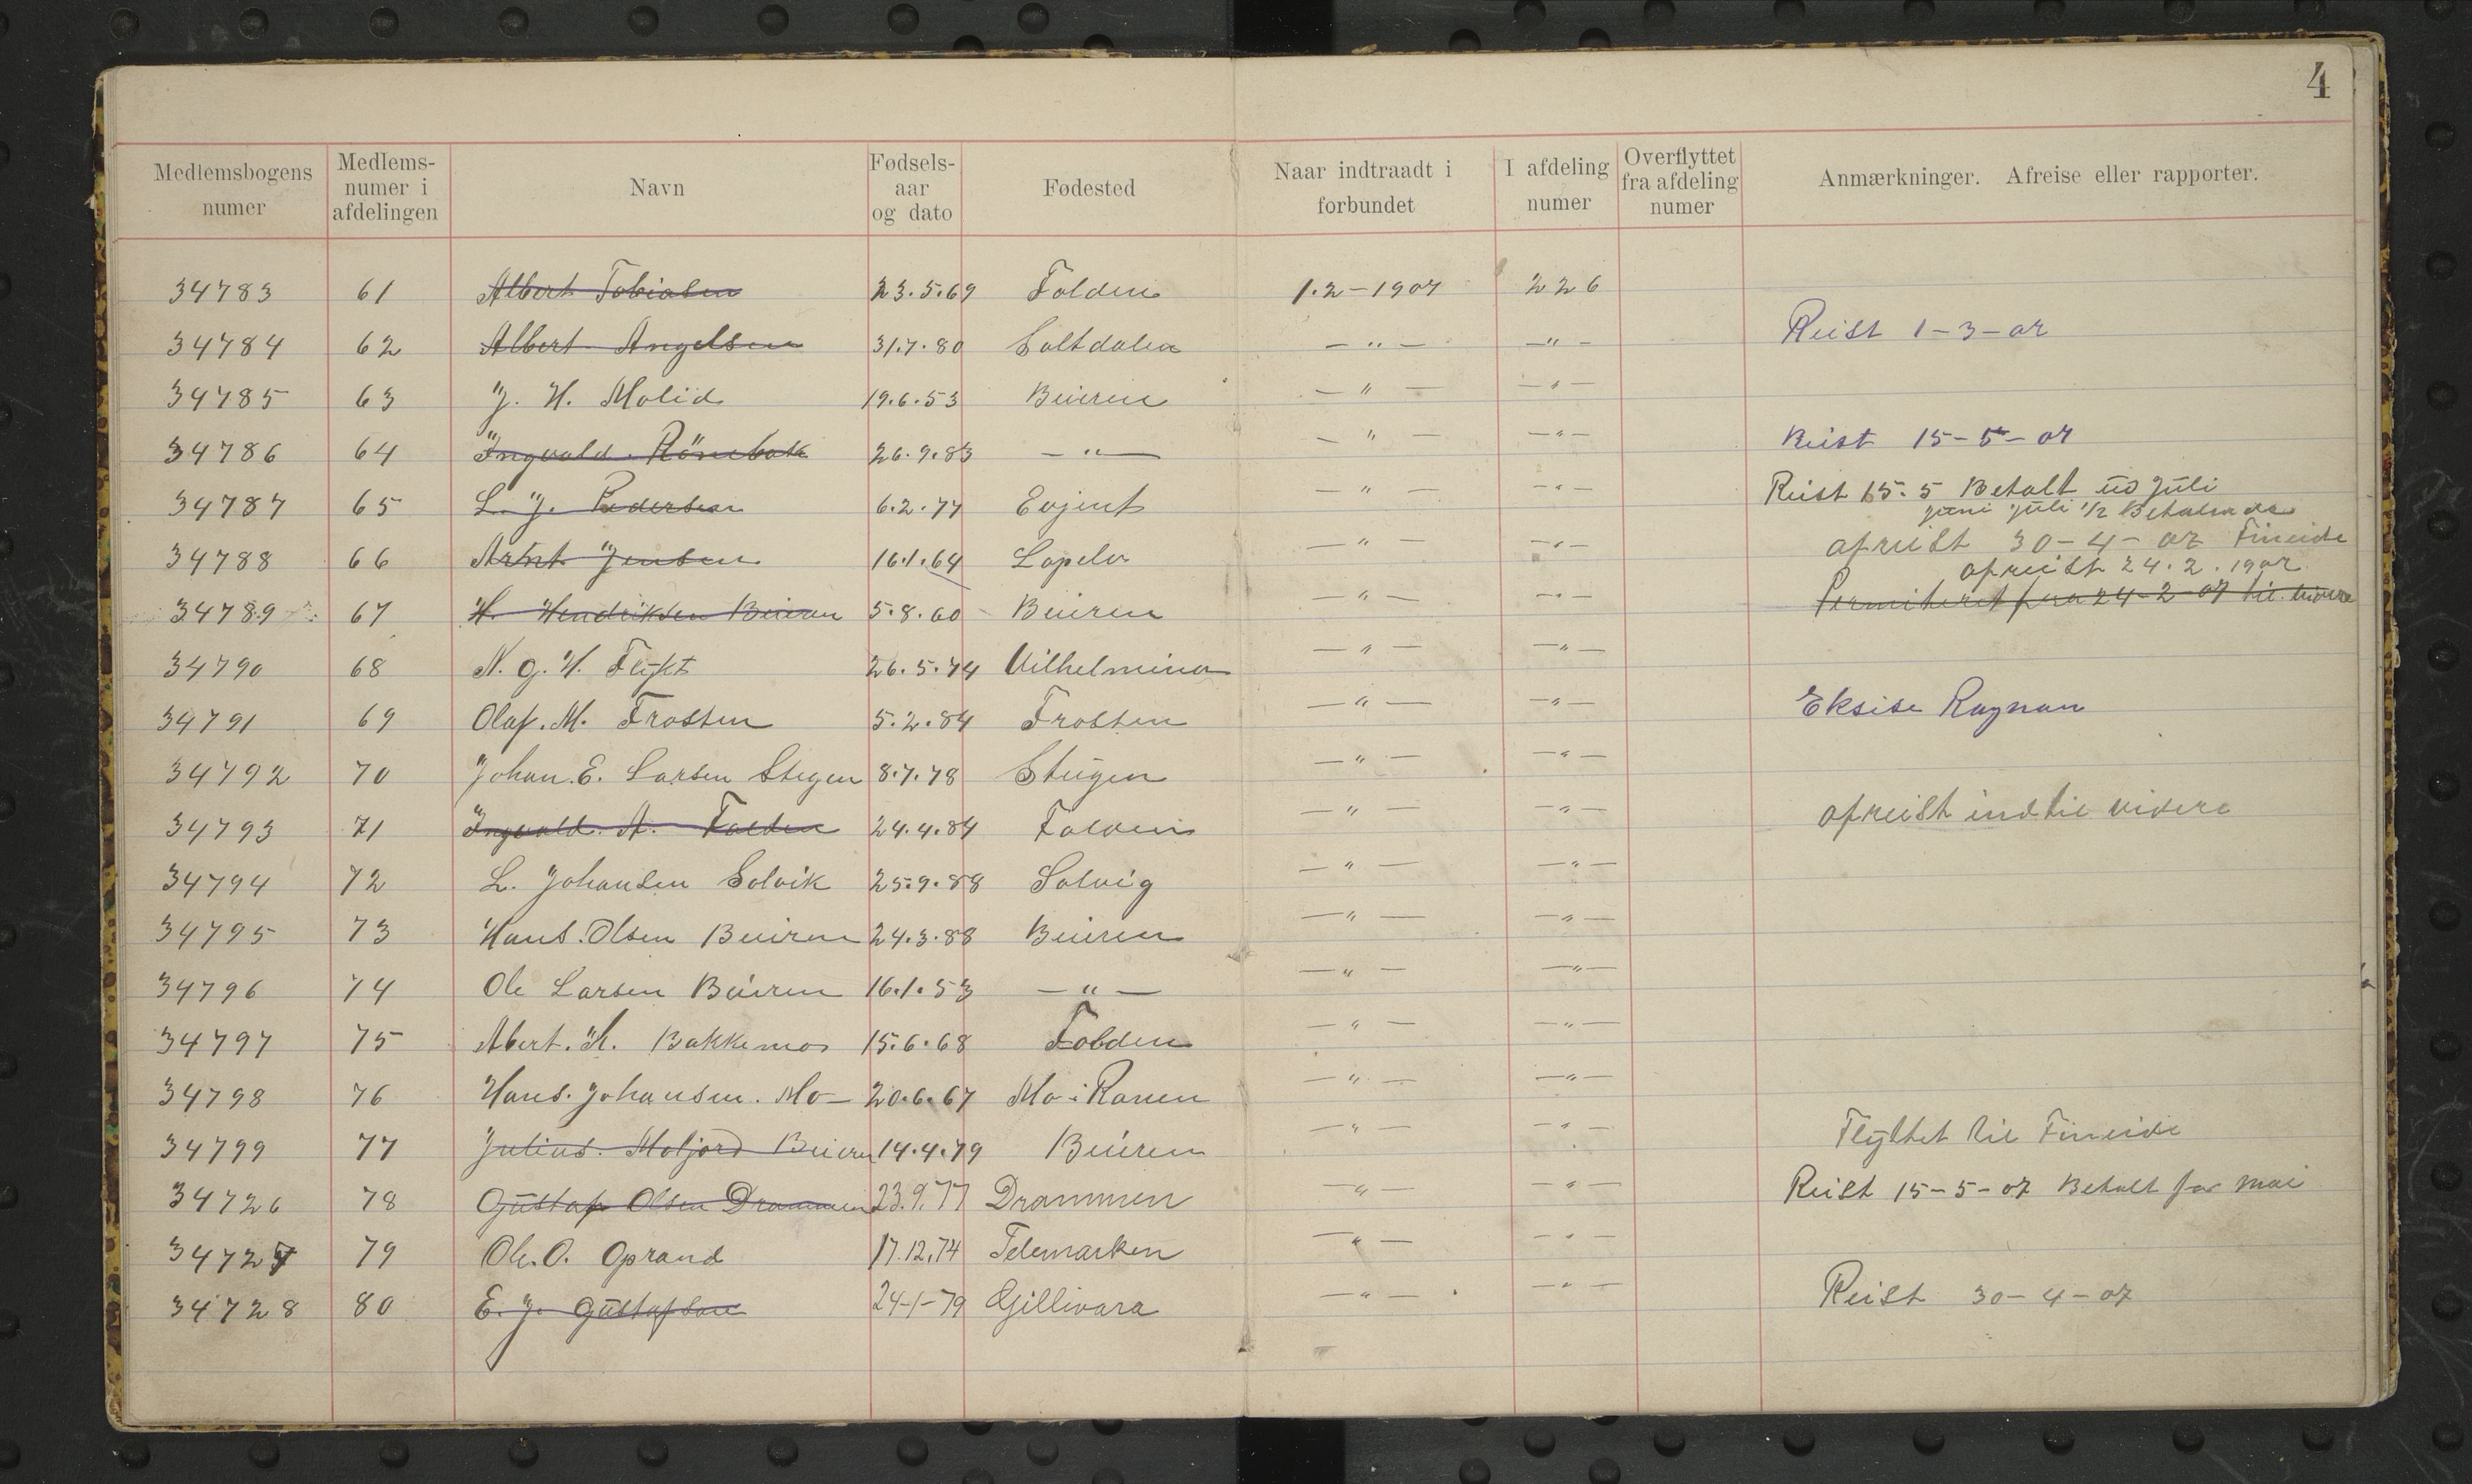 4
Medlemsbogens numer | Medlems-numer i afdelingen | Navn | Fødsels-aar og dato | Fødested | Naar indtraadt i forbundet | I afdeling numer | Overflyttet fra afdeling numer | Anmærkninger. Afreise eller rapporter.
34783 61 Albert Tobiasen 23.5.69 Folden 1.2-1907 226
34784 62 Albert Angelsen 31.7.80 Saltdalen — " — — " — Reist 1-3-07
34785 63 J. H. Molid 19.6.53 Beieren — " — — " —
34786 64 Ingvald Rönebak 26.9.83 — " — — " — — " — Reist 15-5-07
34787 65 L. J. Pedersen 6.2.77 Evjent — " — — " — Reist 15.5 Betalt ud Juli
Juni Juli 1/2 Betalende
34788 66 Arnt Jensen 16.1.64 Lapelv — " — — " — afreist 30-4-07 Fineide
afreist 24.2.1907
34789 67 H. Hendriksen Beieren 5.8.60 Beieren — " — — " — Permiteret fra 24-2-07 til videre
34790 68 N. G. H. Flykt 26.5.74 Vilhelmina — " — — " —
34791 69 Olaf. M. Frosten 5.2.84 Frosten — " — — " — Eksise Rognan
34792 70 Johan. E. Larsen Stegen 8.7.78 Steigen — " — — " —
34793 71 Ingvald. A. Folden 24.4.84 Folden — " — — " — afreist indtil videre
34794 72 L. Johansen Solvik 25.9.88 Solvig — " — — " —
34795 73 Hans. Olsen Beieren 24.3.88 Beieren — " — — " —
34796 74 Ole Larsen Beieren 16.1.53 — " — — " — — " —
34797 75 Abert. H. Bakkemo 15.6.68 Folden — " — — " —
34798 76 Hans. Johansen. Mo— 20.6.67 Mo i Ranen — " — — " —
34799 77 Julius. Moljord Beieren 14.4.79 Beieren — " — — " — Flyttet til Fineide
34726 78 Gustaf Olsen Drammen 23.9.77 Drammen — " — — " — Reist 15-5-07 Betalt for mai
34727 79 Ole. O. Oprand 17.12.74 Telemarken — " — — " —
34728 80 E. J. Gustafson 24-1-79 Gillivara — " — — " — Reist 30-4-07